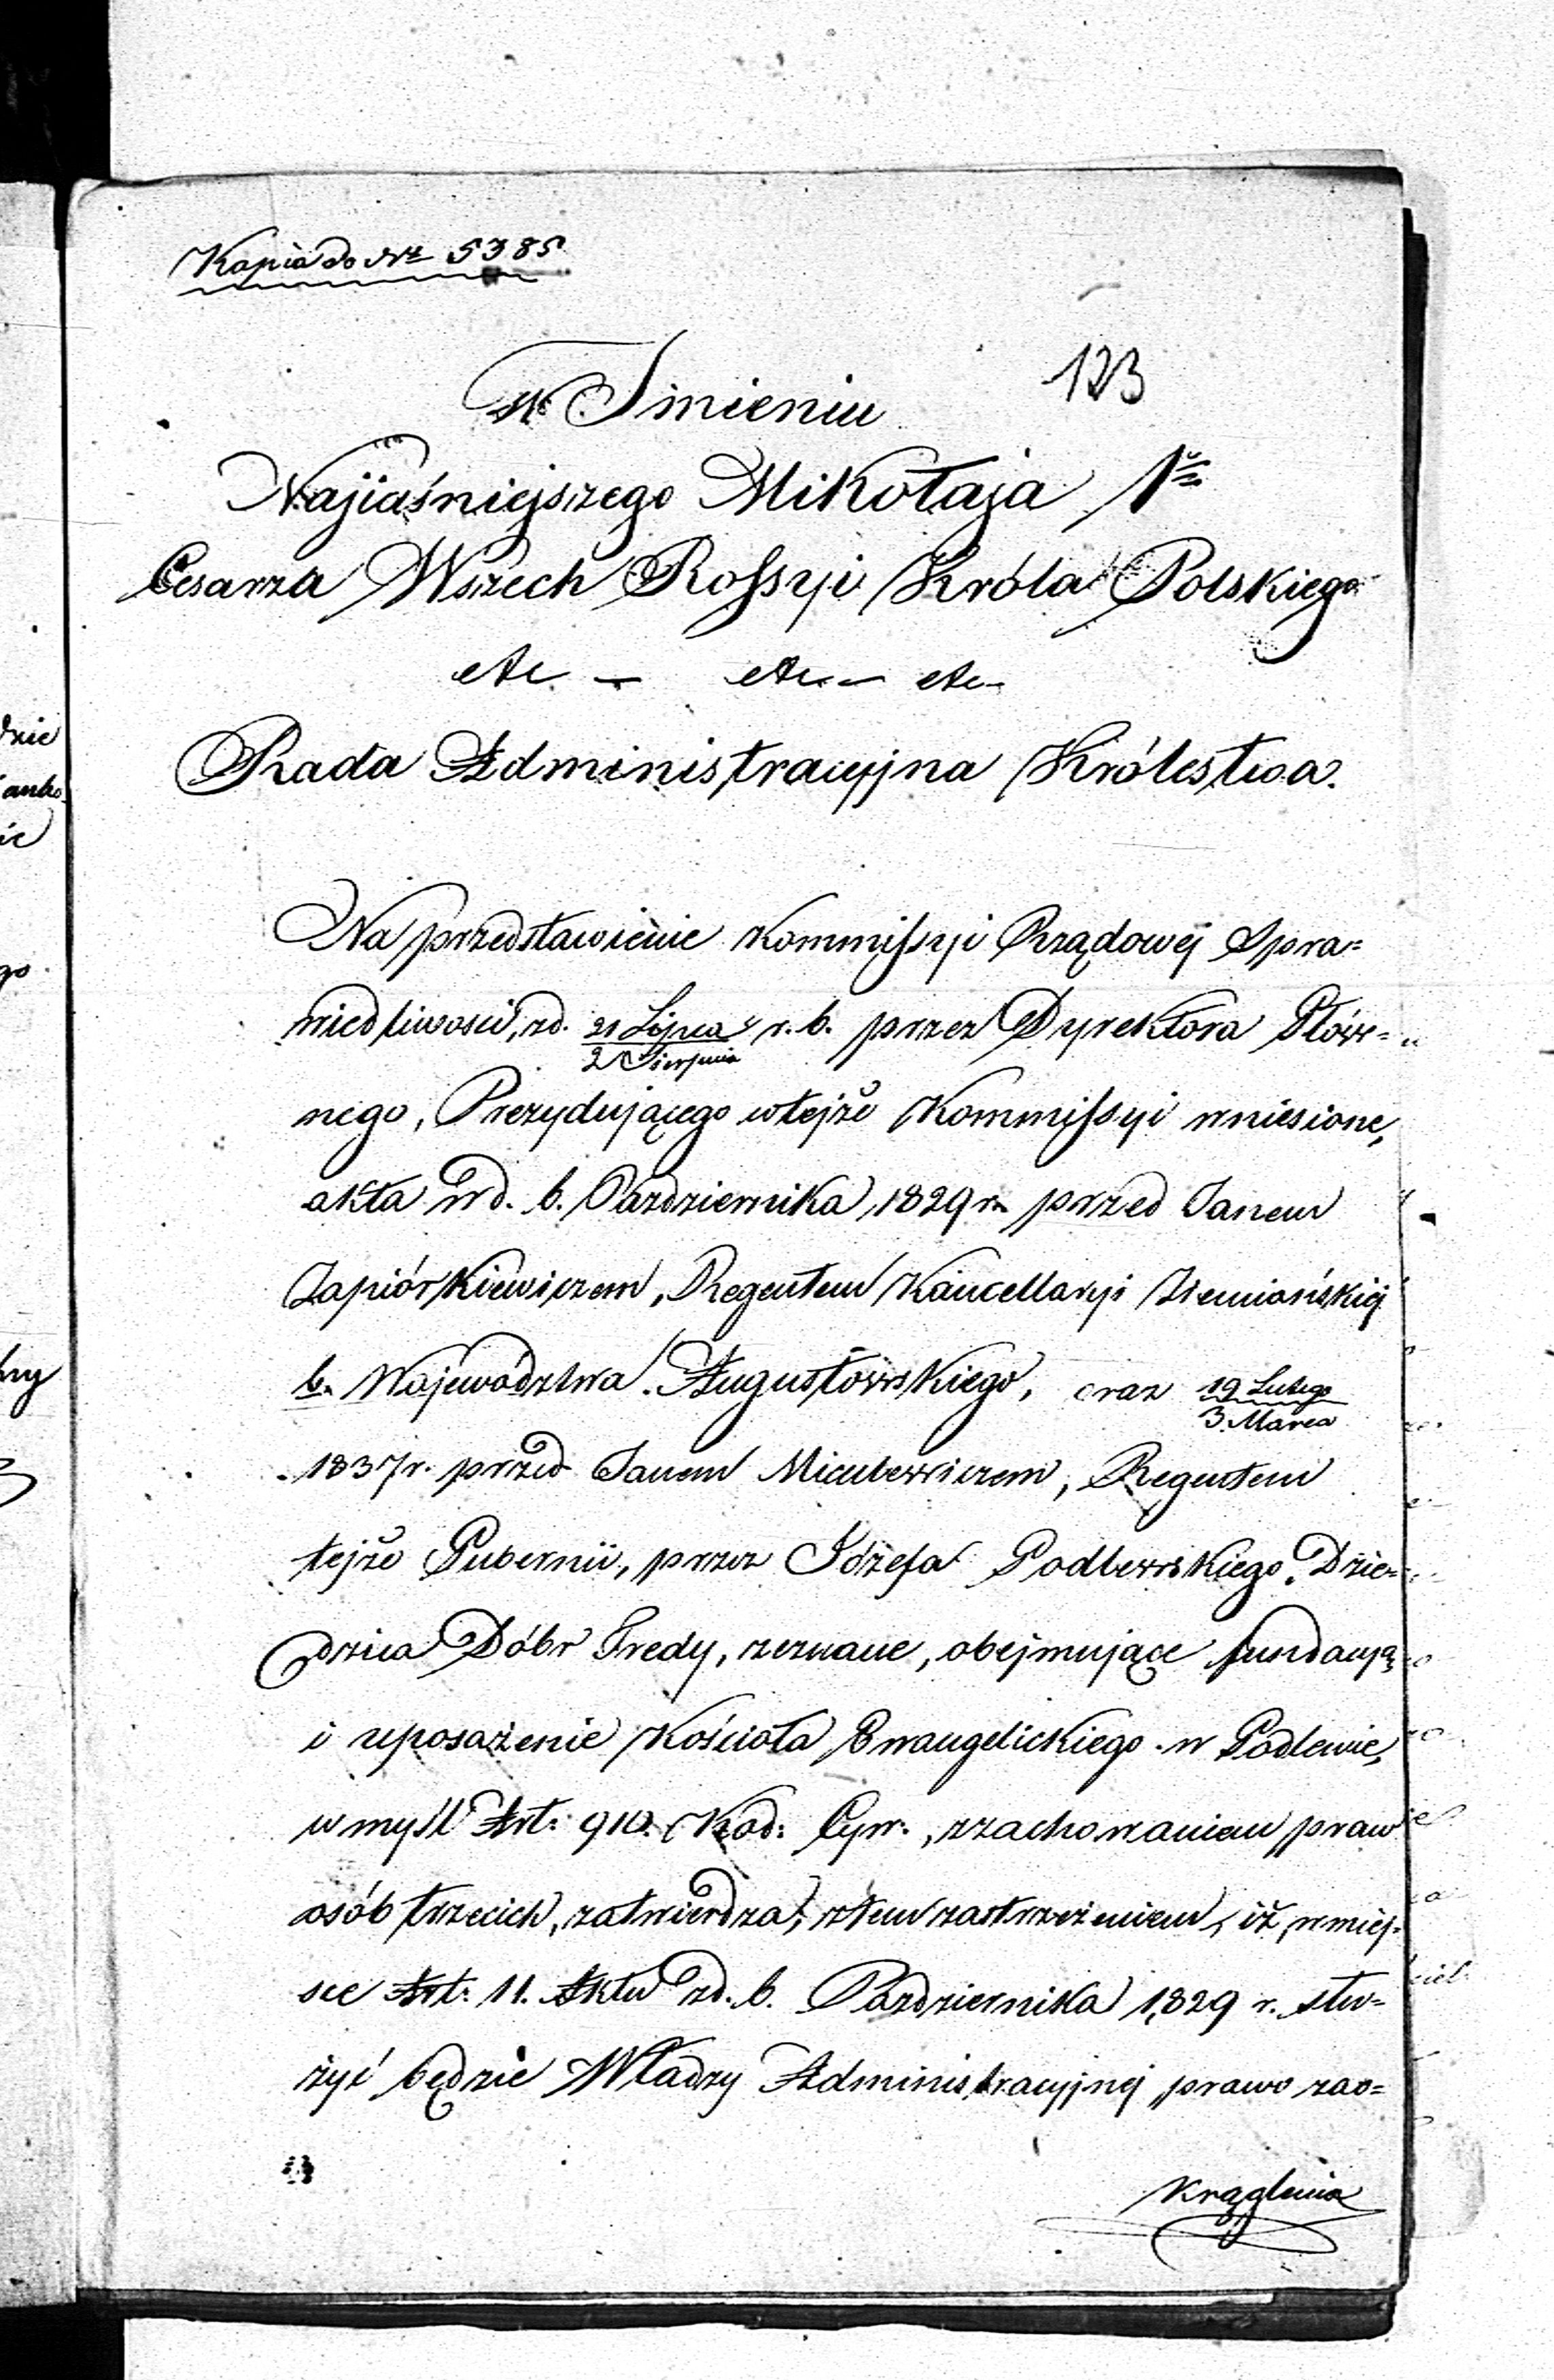 Kopia do Nr 5385
123
w Imieniu
Najjaśniejszego Mikołaja 1go
Cesarza Wszech Rossyi Króla Polskiego
etc — etc — etc —
Rada Administracyjna Królestwa.
Na przedstawienie Kommissyi Rządowéj Spra=
wiedliwości, zd. 21 Lipca / 2 Sierpnia r. b. przez Dyrektora Głów=
nego, Prezydującego w tejże Kommissyi wniesione,
akta w d. 6. Października, 1829 r. przed Janem
Zapiórkiewiczem, Regentem Kancellaryi Ziemiańskiéj
b. Województwa Augustowskiego, oraz 19 Lutego / 3 Marca
1837 r. przed Janem Micubewiczem, Regentem
tejże Gubernii, przez Józefa Godlewskiego, Dzie=
dzica Dóbr Fredy, zeznane, obejmujące fundacyą
i uposażenie Kościoła Ewangelickiego w Godlewie,
w myśl Art: 910. Kod: Cyw., z zachowaniem praw
osób trzecich, zatwierdza, z tem zastrzeżeniem, iż, w miej=
sce Art: 11. Aktu zd. 6. Października 1829 r. słu=
żyć będzie Władzy Administracyjnéj prawo zao=
krąglenia